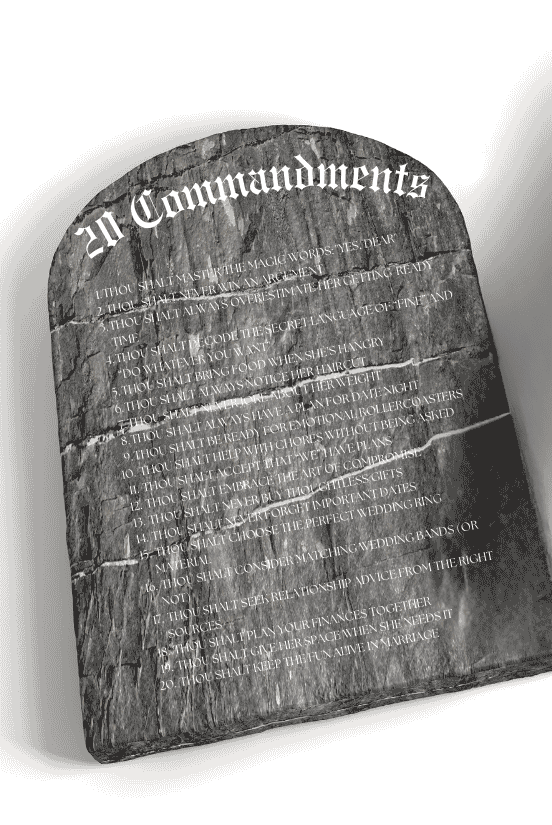 20 Commandments
1. THOU SHALT MASTER THE MAGIC WORDS: "YES, DEAR"
2. THOU SHALT NEVER WIN AN ARGUMENT
3. THOU SHALT ALWAYS OVERESTIMATE HER GETTING-READY
TIME
4. THOU SHALT DECODE THE SECRET LANGUAGE OF "FINE" AND
"DO WHATEVER YOU WANT"
5. THOU SHALT BRING FOOD WHEN SHE'S HANGRY
6. THOU SHALT ALWAYS NOTICE HER HAIRCUT
7. THOU SHALT ABOUT HER WEIGHT
8. THOU SHALT ALWAYS HAVE A PLAN FOR DATE NIGHT
9. THOU SHALT BE READY FOR EMOTIONAL ROLLERCOASTERS
10. THOU SHALT HELP WITH CHORES WITHOUT BEING ASKED
11. THOU SHALT ACCEPT THAT "WE" HAVE PLANS
12. THOU SHALT EMBRACE THE ART OF COMPROMISE
13. THOU SHALT NEVER BUY THOUGHTLESS GIFTS
14. THOU SHALT NEVER FORGET IMPORTANT DATES
15. THOU SHALT CHOOSE THE PERFECT WEDDING RING
MATERIAL
16. THOU SHALT CONSIDER MATCHING WEDDING BANDS (OR
NOT)
17. THOU SHALT SEEK RELATIONSHIP ADVICE FROM THE RIGHT
SOURCES
18. THOU SHALT PLAN YOUR FINANCES TOGETHER
19. THOU SHALT GIVE HER SPACE WHEN SHE NEEDS IT
20. THOU SHALT KEEP THE FUN ALIVE IN MARRIAGE